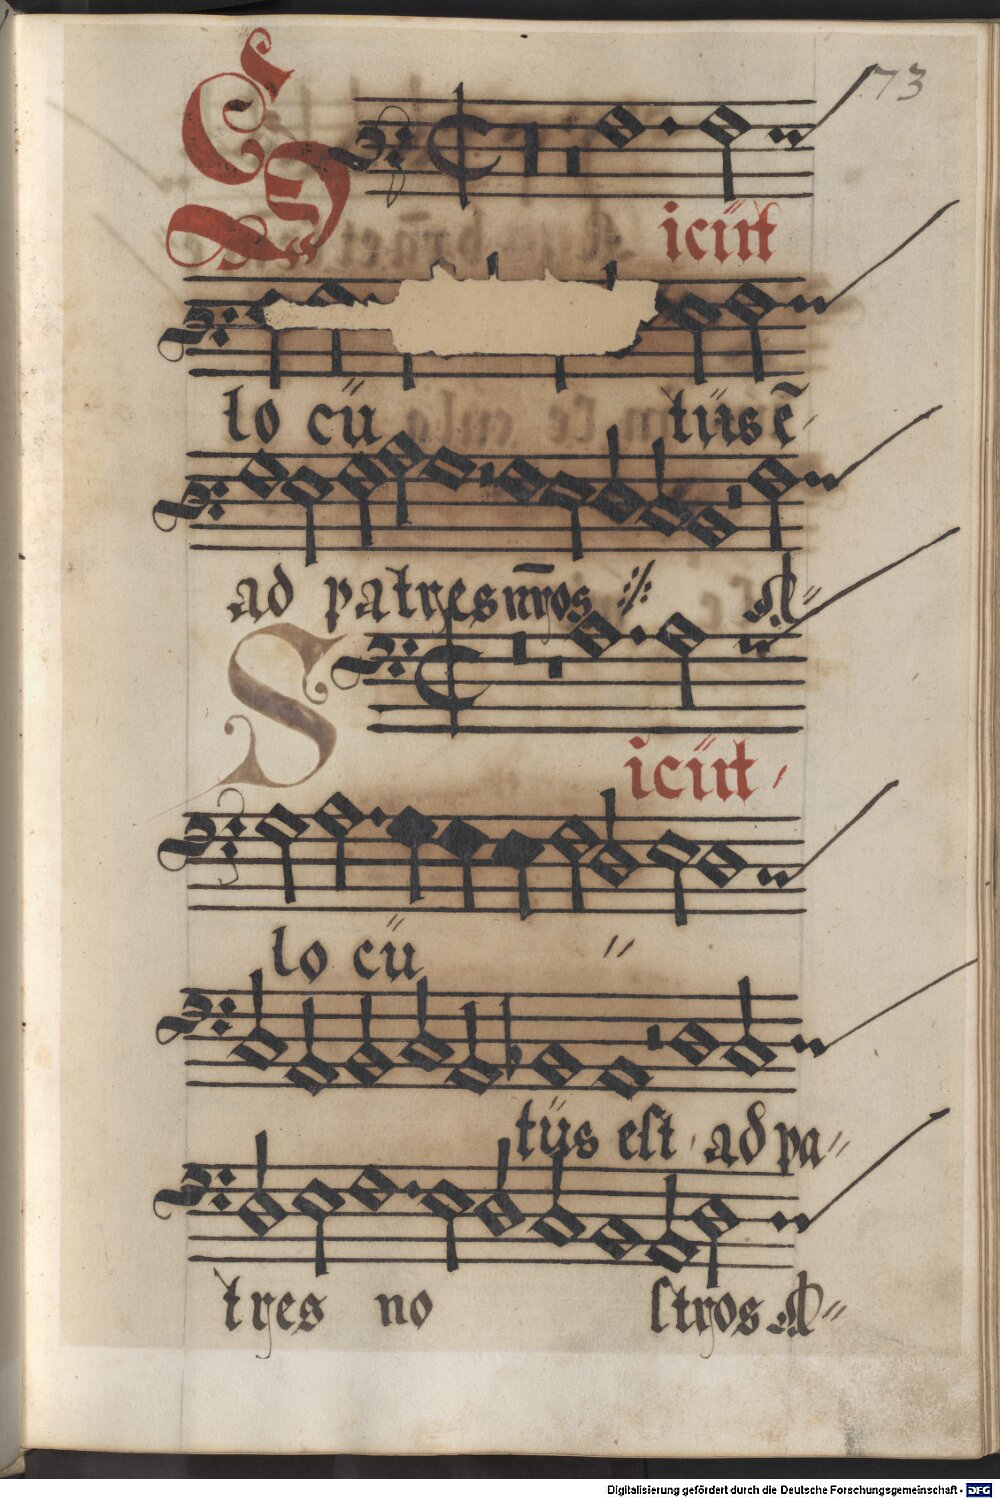 173
Sicut
locu tus ē
ad patres nr̄os :/: A
Sicut
locu
tus est ad pa
tres no stros A
Digitalisierung gefördert durch die Deutsche Forschungsgemeinschaft - DFG